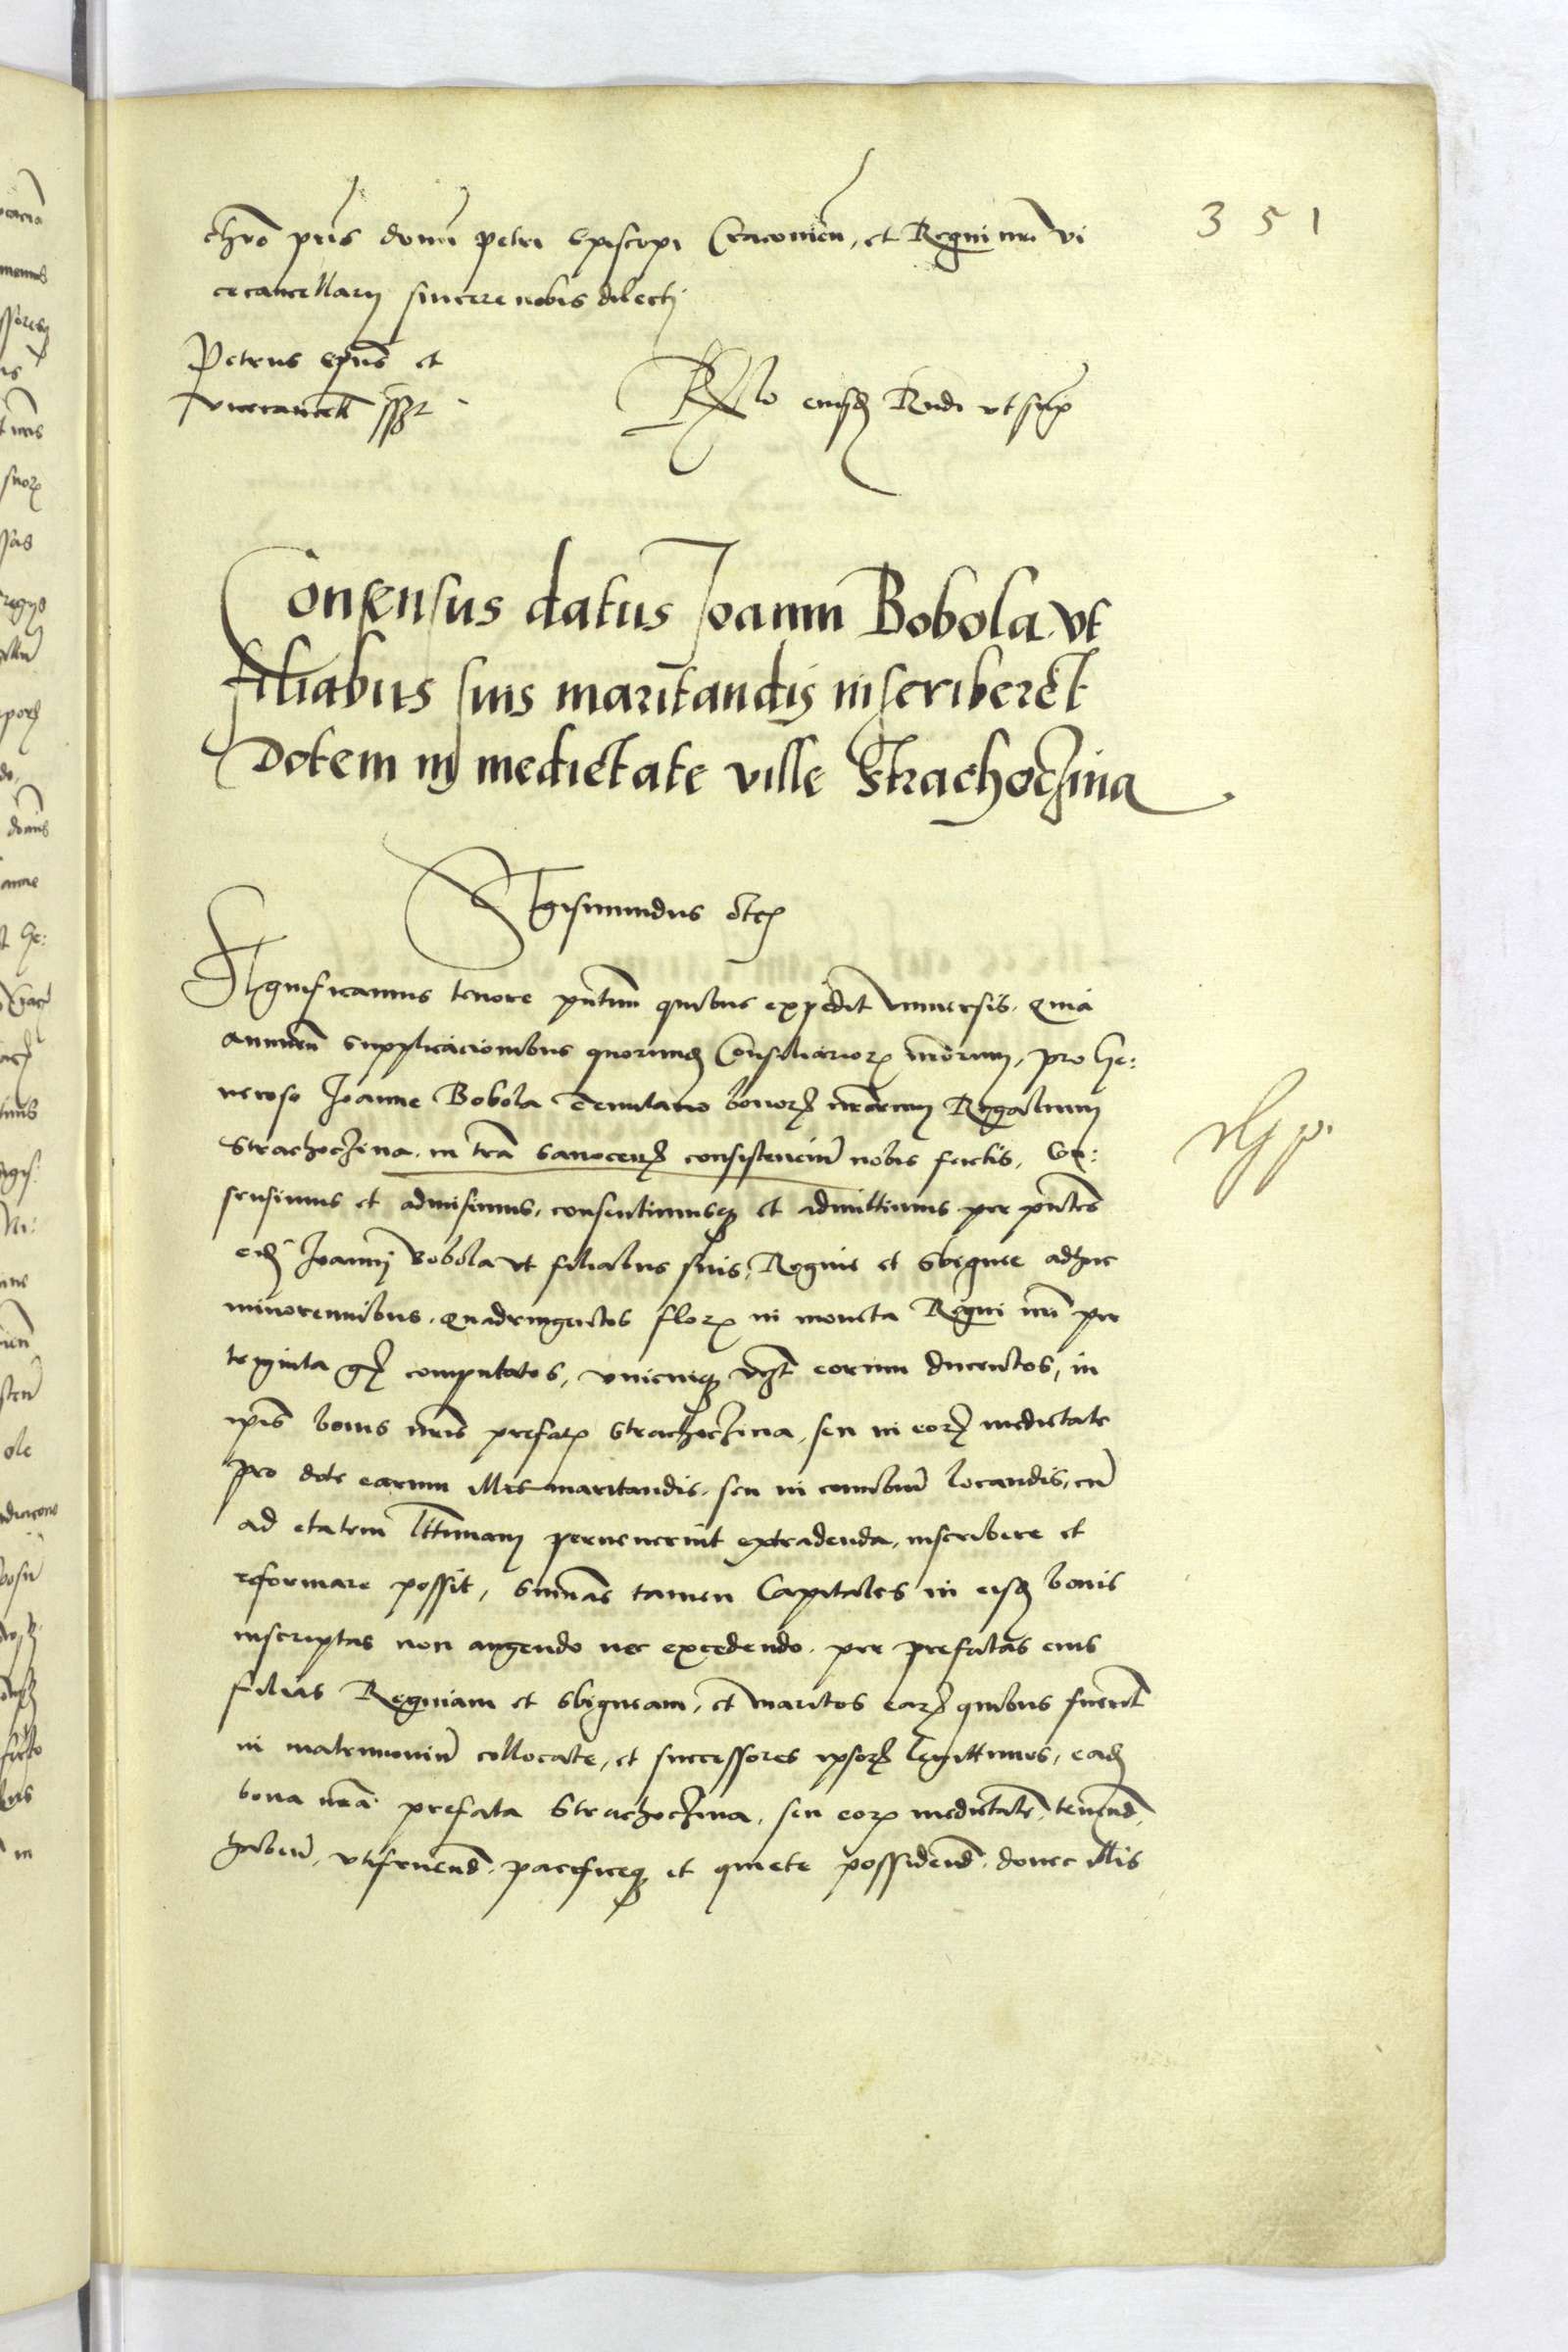 351
chro pris domi Petri Episcopi Cracovien, et Regni nri vi
cecancellarii sincere nobis dilecti
Petrus epus et
vicecancell sspt
Rlo eiusdē Rndi ut supra
Consensus datus Joanni Bobola. vt
filiabus suis maritandis inscriberet
Dotem in medietate ville Strachoczina
Sigismundus etc
Significamus tenore pntium quibus expedit vniuersis. Quia
annuen supplicacionibus quorundā Consiliariorum nrorum, pro Ge:
neroso Joanne Bobola Tenutario bonorum nrorum Regalium
Strachoczina. in tra Sanocens consistenciū nobis factis, Con:
sensimus et admisimus, consentimusque et admittimus per pntes
eidē Joanni Bobola vt filiabus suis, Regine et Sbignee adhuc
minorennibus. quadringentos florenos in moneta Regni nri per
triginta gros computatos, vnicuique vidlt earum ducentos, in
ipis bonis nris prefatis Strachoczina, seu in eorum medietate
pro dote earum illis maritandis. seu in connubiū locandis, cū
ad etatem lttimam peruenerint extradenda, inscribere et
reformare possit, Summas tamen Capitales in eisdē bonis
inscriptas non augendo nec excedendo. per prefatas eius
filias Reginam et Sbigneam, et maritos earum quibus fuerint
in matrimoniū collocate, et successores ipsorum legittimos, eadē
bona nra prefata Strachoczina, seu eorum medietatē, tenend,
habend, vtifruend, pacificeque et quiete possidend. donec illis